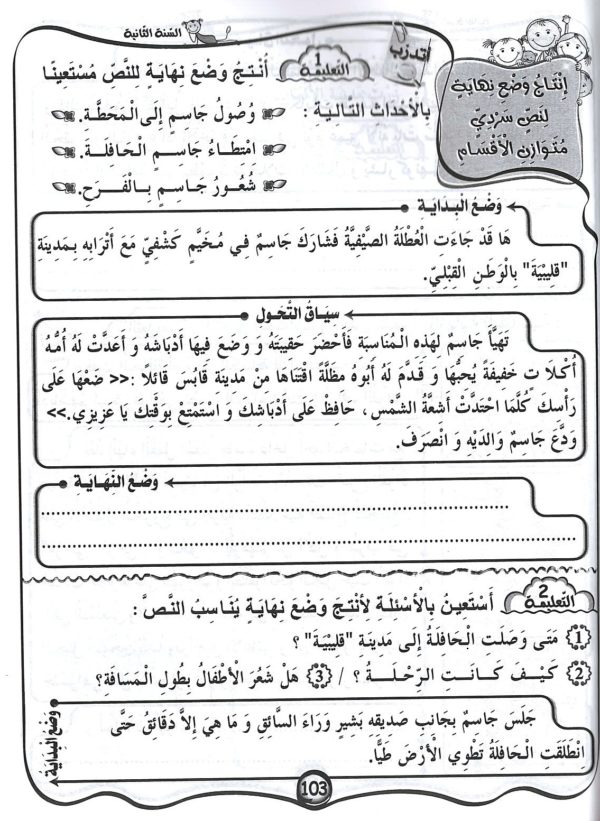 السّنة الثّانية
أتدرّب
إِنْتَاجُ وَضْعِ نِهَايَةٍ
لِنَصٍّ سَرْدِيٍّ
مُتَوَازِنِ الْأَقْسَامِ
التّعليمة 1
أُنْتِجُ وَضْعَ نِهَايَةٍ لِلنَّصِّ مُسْتَعِينًا
بِالْأَحْدَاثِ التَّالِيَةِ :
وُصُولُ جَاسِمٍ إِلَى الْمَحَطَّةِ.
امْتِطَاءُ جَاسِمٍ الْحَافِلَةَ.
شُعُورُ جَاسِمٍ بِالْفَرَحِ.
وَضْعُ الْبِدَايَةِ
هَا قَدْ جَاءَتِ الْعُطْلَةُ الصَّيْفِيَّةُ فَشَارَكَ جَاسِمٌ فِي مُخَيَّمٍ كَشْفِيٍّ مَعَ أَتْرَابِهِ بِمَدِينَةِ
"قليبْيَة" بِالْوَطَنِ الْقِبْلِيِّ.
سِيَاقُ التَّحَوُّلِ
تَهَيَّأَ جَاسِمٌ لِهَذِهِ الْمُنَاسَبَةِ فَأَحْضَرَ حَقِيبَتَهُ وَ وَضَعَ فِيهَا أَدْبَاشَهُ وَ أَعَدَّتْ لَهُ أُمُّهُ
أُكْلَاتٍ خَفِيفَةً يُحِبُّهَا وَ قَدَّمَ لَهُ أَبُوهُ مِظَلَّةً اقْتَنَاهَا مِنْ مَدِينَةِ قَابُسَ قَائِلًا :<< ضَعْهَا عَلَى
رَأْسِكَ كُلَّمَا احْتَدَّتْ أَشِعَّةُ الشَّمْسِ، حَافِظْ عَلَى أَدْبَاشِكَ وَ اسْتَمْتِعْ بِوَقْتِكَ يَا عَزِيزِي.>>
وَدَّعَ جَاسِمٌ وَالِدَيْهِ وَ انْصَرَفَ.
وَضْعُ النِّهَايَةِ
التّعليمة 2
أَسْتَعِينُ بِالْأَسْئِلَةِ لِأُنْتِجَ وَضْعَ نِهَايَةٍ يُنَاسِبُ النَّصَّ :
1 مَتَى وَصَلَتِ الْحَافِلَةُ إِلَى مَدِينَةِ "قليبْيَة" ؟
2 كَيْفَ كَانَتِ الرِّحْلَةُ ؟ / 3 هَلْ شَعَرَ الْأَطْفَالُ بِطُولِ الْمَسَافَةِ؟
وَضْعُ الْبِدَايَةِ
جَلَسَ جَاسِمٌ بِجَانِبِ صَدِيقِهِ بَشِيرٍ وَرَاءَ السَّائِقِ وَ مَا هِيَ إِلَّا دَقَائِقُ حَتَّى
انْطَلَقَتِ الْحَافِلَةُ تَطْوِي الْأَرْضَ طَيًّا.
103